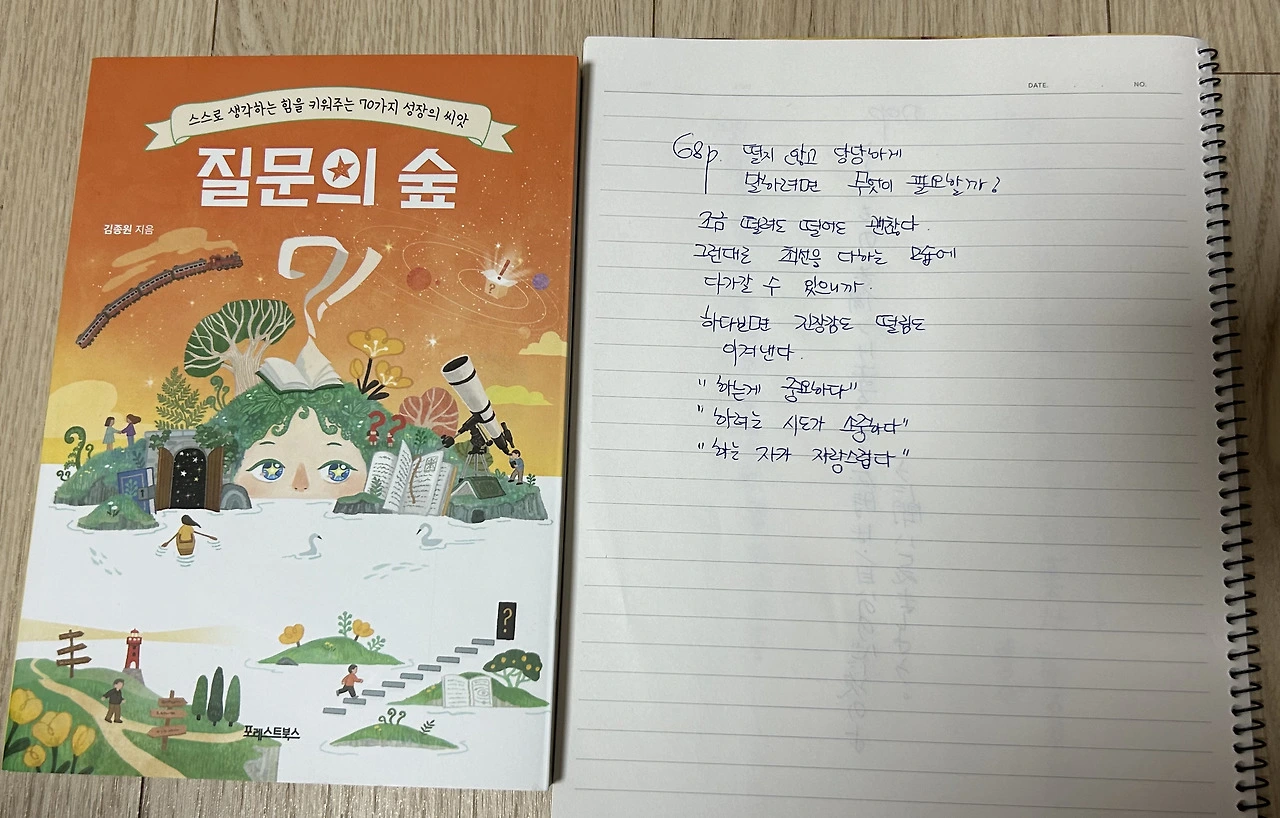 스스로 생각하는 힘을 키워주는 70가지 성장의 씨앗
질문의 숲
김종원 지음
?!
!
?
??
?
???
포레스트북스
DATE. NO.
68p. 떨지 않고 당당하게
말하려면 무엇이 필요할까?
조금 떨려도 떨어도 괜찮다.
그런대로 최선을 다하는 모습에
다가갈 수 있으니까.
하다보면 긴장감도 떨림도
이겨낸다.
"하는게 중요하다"
"하려는 시도가 소중하다"
"하는 자가 자랑스럽다"